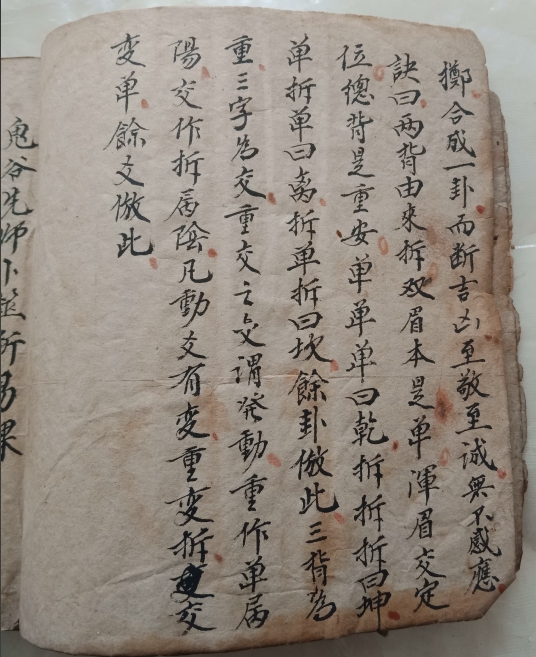 擲合成一卦而断吉凶至敬至诚無不感應
訣曰兩背由來拆双眉本是单渾眉交定
位總背是重安单单单曰乾拆拆拆曰坤
单拆单曰离拆单拆曰坎餘卦倣此三背為
重三字為交重交之爻謂發動重作单属
陽交作拆属陰凡動爻有变重变拆交
变单餘爻倣此
鬼谷先师卜筮所易課